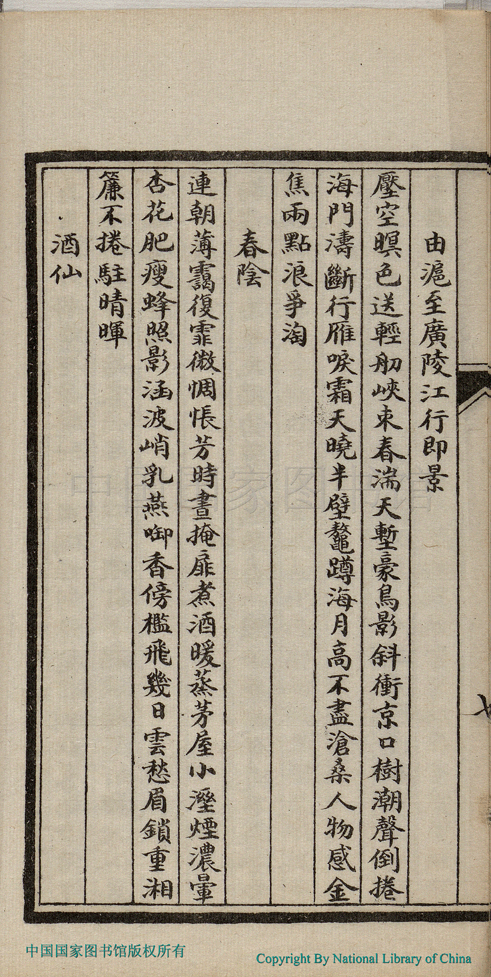 由滬至廣陵江行即景
壓空暝色送輕舠峽束春湍天塹豪鳥影斜衝京口樹潮聲倒捲
海門濤斷行雁唳霜天曉半壁鼇蹲海月高不盡滄桑人物感金
焦兩點浪爭淘
春陰
連朝薄靄復霏微惆悵芳時晝掩扉煮酒暖蒸茅屋小溼煙濃暈
杏花肥瘦蜂照影涵波峭乳燕啣香傍檻飛幾日雲愁眉鎖重湘
簾不捲駐晴暉
酒仙
中国国家图书馆
中国国家图书馆版权所有
Copyright By National Library of China